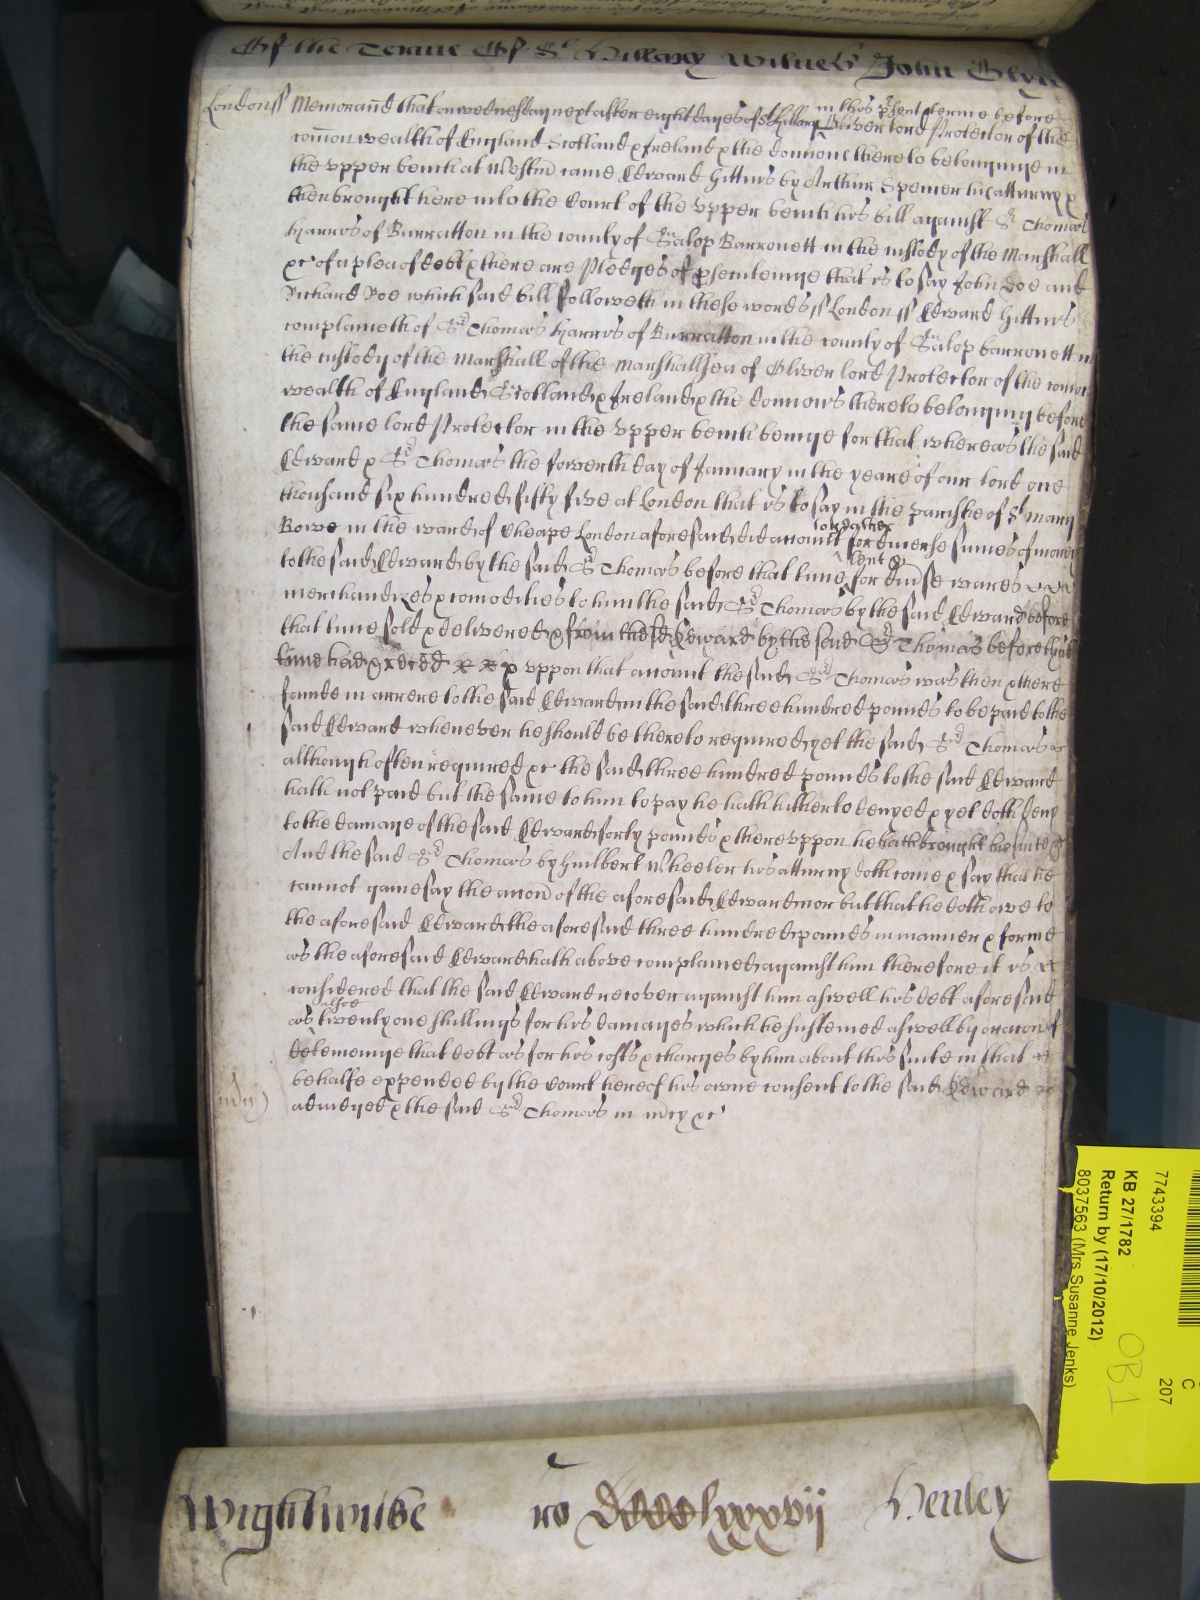 Of the Terme Of St Hillary Witnes John Glyn
London ss Memorand that on wednesday next after eight dayes of St Hillary in this psent terme before Oliver lord Protector of the
comon wealth of England Scotland & Ireland & the dominions thereto belonginge in
the upper bench at Westm came Edward Gittins by Arthur Spencer his atturney &
then brought here into the Court of the upper bench his bill against Sr Thomas
Harris of Burratton in the county of Salop Barronett in the custody of the Marshall
&c of a plea of debt & there are Pledges of psecutinge that is to say John Doe and
Richard Roe which said bill followeth in these words ss London ss Edward Gittins
complaineth of Sr Thomas Harris of Burratton in the county of Salop barronett in
the custody of the Marshall of the Marshallsea of Oliver lord Protector of the comon
wealth of England Scotland & Ireland & the dominions thereto belonging before
the same lord Protector in the upper bench beinge for that whereas the said
Edward & Sr Thomas the fowerth day of January in the yeare of our lord one
thousand six hundred fifty five at London that is to say in the parishe of St mary
Bowe in the ward of Cheape London aforesaid did accompt together for diverse sumes of money
to the said Edward by the said Sr Thomas before that time lent & for divse wares
merchandizes & comodities to him the said Sr Thomas by the said Edward before
that time sold & delivered & from the sd Edward by the said Sr Thomas before that
time had & reced & uppon that accompt the said Sr Thomas was then & there
founde in arrere to the said Edward in the said three hundred pounds to be paid to the
said Edward whenever he should be thereto required yet the said Sr Thomas
although often required &c the said three hundred pounds to the said Edward
hath not paid but the same to him to pay he hath hitherto denyed & yet doth deny
to the damage of the said Edward forty pounds & thereuppon he hath brought his suite &c
And the said Sr Thomas by Guilbert Wheeler his atturny doth come & say that he
cannot gainesay the accon of the aforesaid Edward nor but that he doth owe to
the aforesaid Edward the aforesaid three hundred pounds in manner & forme
as the aforesaid Edward hath above complained against him therefore it is
considered that the said Edward recover against him aswell his debt aforesaid
as alsoe twenty one shillings for his damages which he susteined aswell by occacon of
deteininge that debt as for his costs & charges by him about his suite in that
behalfe expended by the Court here of his owne consent to the said Edward
adiudged & the said Sr Thomas in mcy &c
mcy
Wightwicke ro Henley
7743394
KB 27/1782
Return by (17/10/2012)
8037563 (Mrs Susanne Jenks)
C
207
OB1